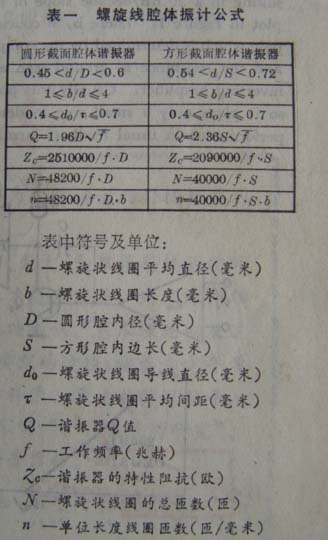 表一 螺旋线腔体振计公式
圆形截面腔体谐振器 方形截面腔体谐振器
0.45<d/D<0.6 0.54<d/S<0.72
1≤b/d≤4 1≤b/d≤4
0.4≤d₀/τ≤0.7 0.4≤d₀/τ≤0.7
Q=1.96D√f Q=2.36S√f
Zc=2510000/f·D Zc=2090000/f·S
N=48200/f·D N=40000/f·S
n=48200/f·D·b n=40000/f·S·b
表中符号及单位:
d —螺旋状线圈平均直径(毫米)
b —螺旋状线圈长度(毫米)
D —圆形腔内径(毫米)
S —方形腔内边长(毫米)
d₀ —螺旋状线圈导线直径(毫米)
τ —螺旋状线圈平均间距(毫米)
Q —谐振器Q值
f —工作频率(兆赫)
Zc—谐振器的特性阻抗(欧)
N —螺旋状线圈的总匝数(匝)
n —单位长度线圈匝数(匝/毫米)